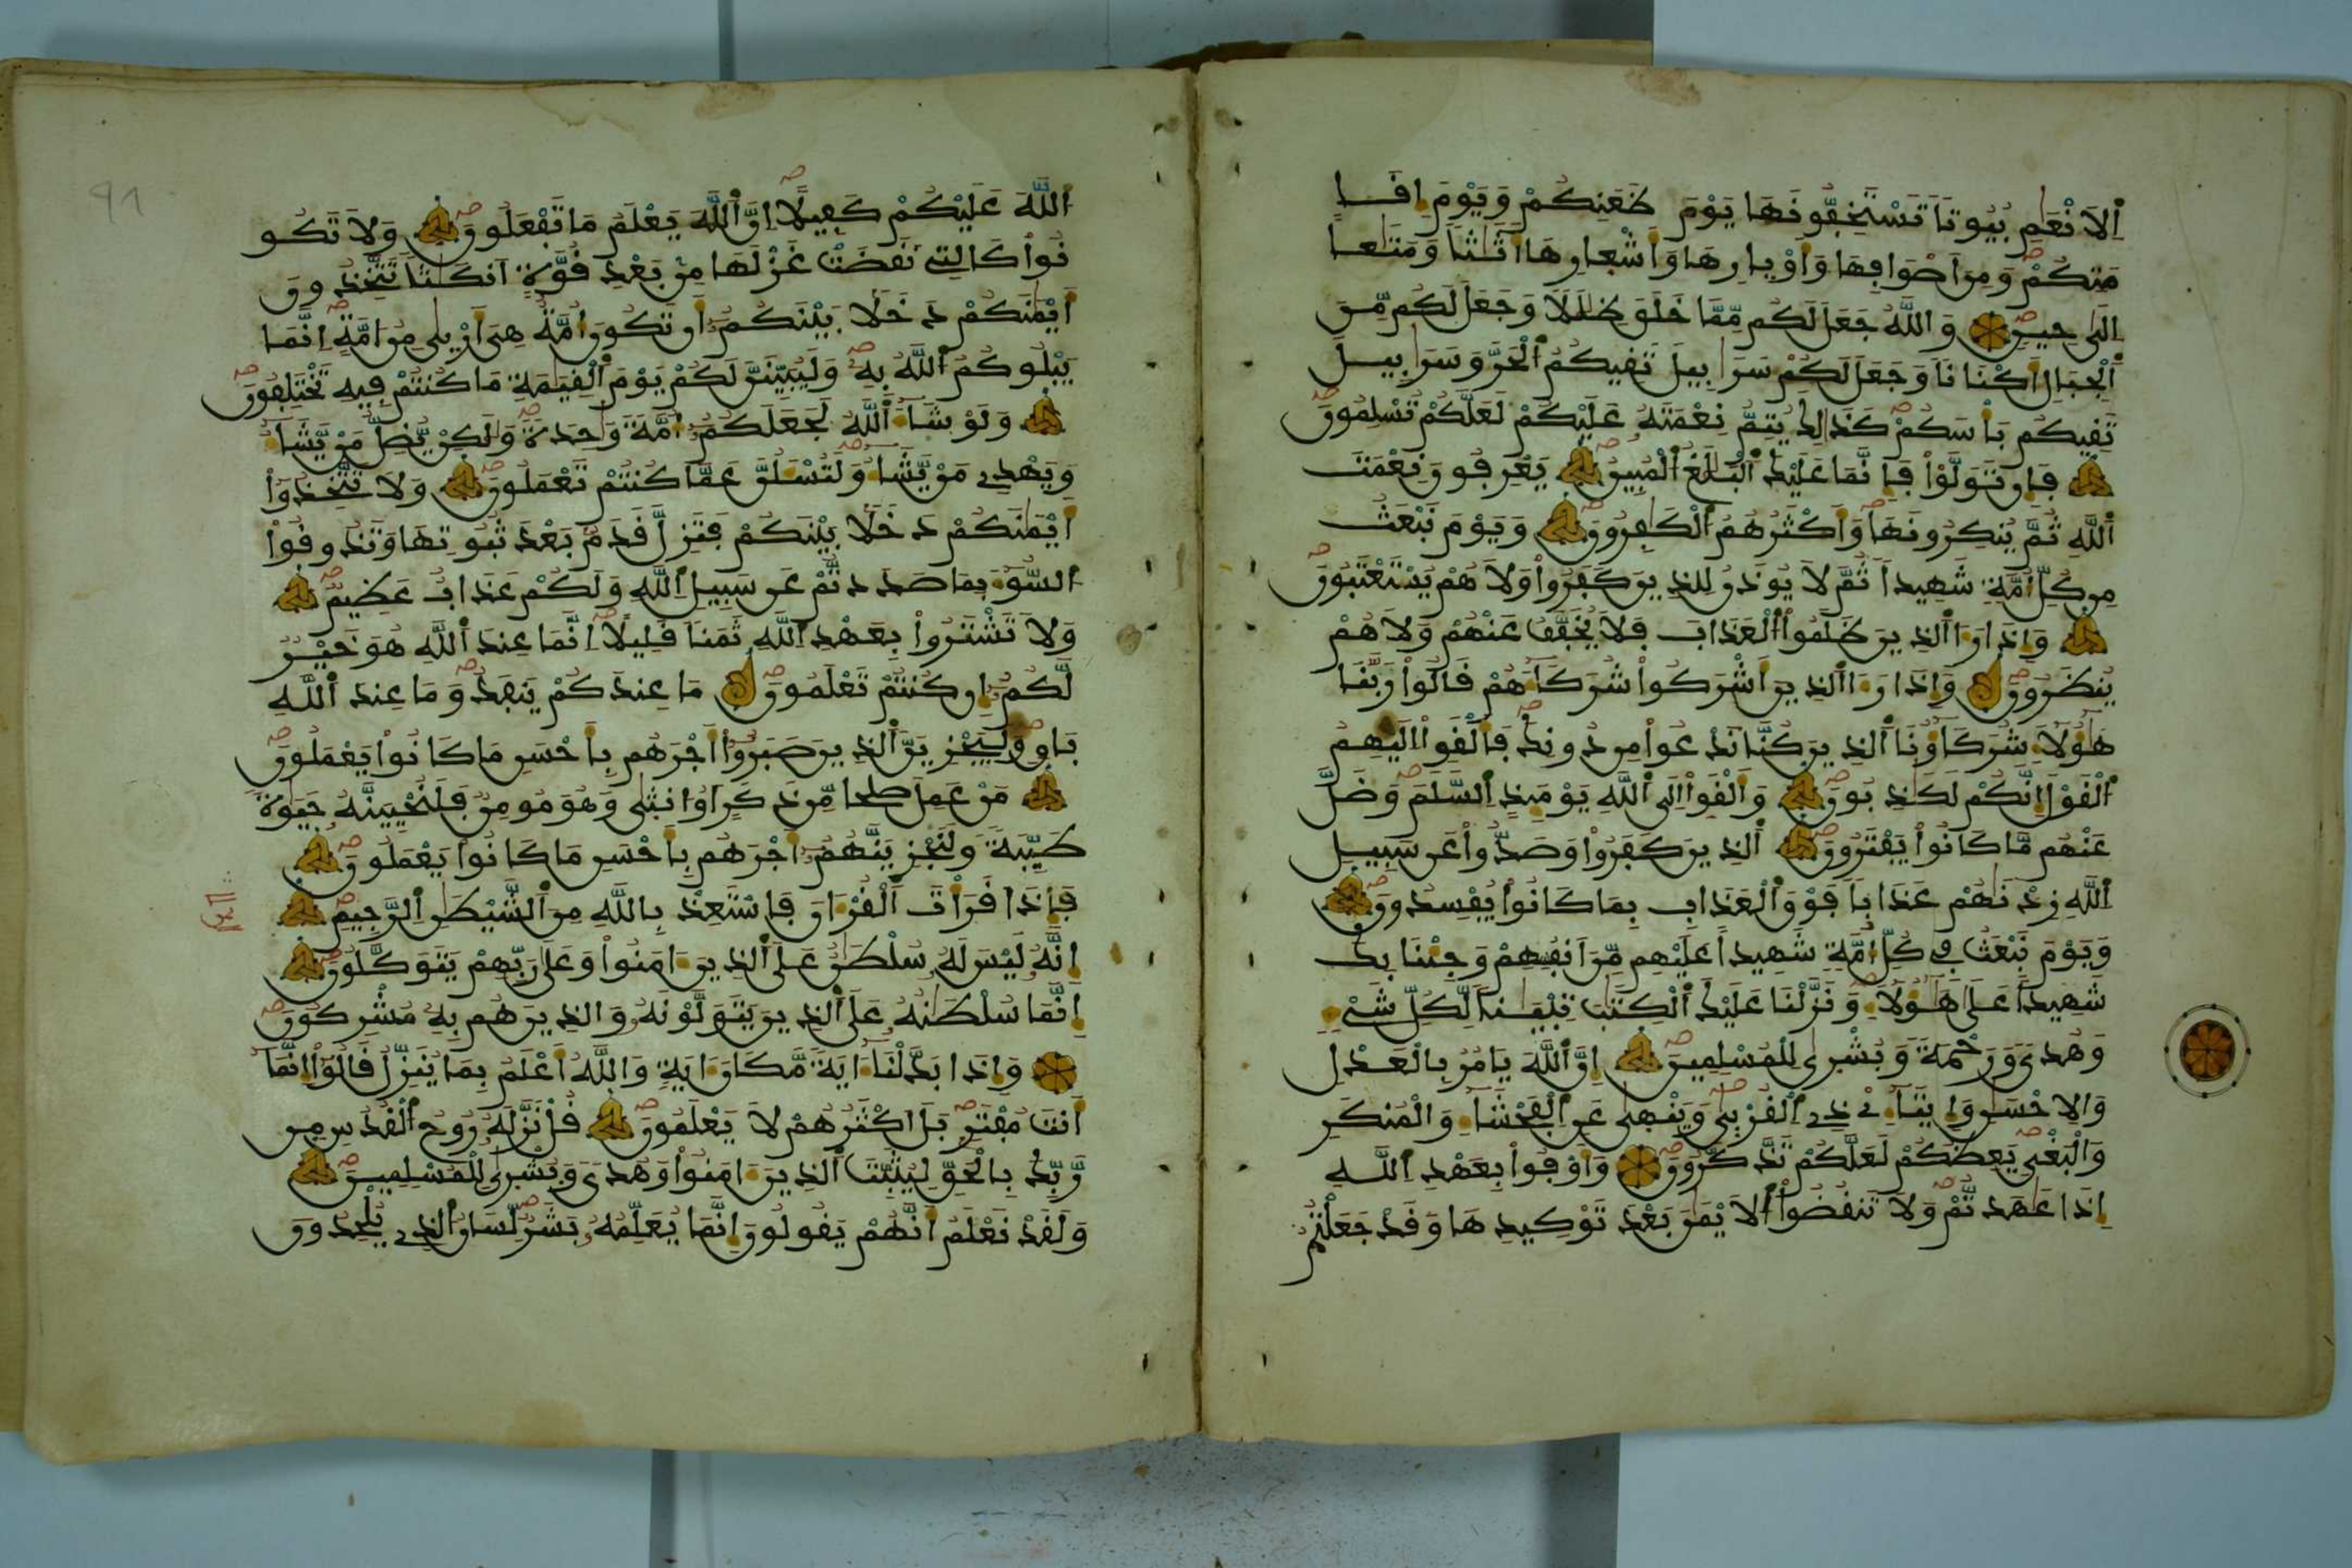 اَ۬لَانْعَٰمِ بُيُوتاٗ تَسْتَخِفُّونَهَا يَوْمَ ظَعَنِكُمْ وَيَوْمَ إِقَا
مَتِكُمْ وَمِنَ اَصْوَافِهَا وَأَوْبِارِهَا وَأَشْعِارِهَا أَثَٰثاٗ وَمَتَٰعاً
اِلَيٰ حِينٖ وَاللَّهُ جَعَلَ لَكُم مِّمَّا خَلَقَ ظِلَٰلاٗ وَجَعَلَ لَكُم مِّنَ
اَ۬لْجِبَالِ أَكْنَٰناٗ وَجَعَلَ لَكُمْ سَرَٰبِيلَ تَقِيكُمُ اُ۬لْحَرَّ وَسَرَٰبِيلَ
تَقِيكُم بَأْسَكُمْ كَذَٰلِكَ يُتِمُّ نِعْمَتَهُۥ عَلَيْكُمْ لَعَلَّكُمْ تُسْلِمُونَ
فَإِن تَوَلَّوْاْ فَإِنَّمَا عَلَيْكَ اَ۬لْبَلَٰغُ اُ۬لْمُبِينُ يَعْرِفُونَ نِعْمَتَ
اَ۬للَّهِ ثُمَّ يُنكِرُونَهَا وَأَكْثَرُهُمُ اُ۬لْكَٰفِرُونَ وَيَوْمَ نَبْعَثُ
مِن كُلِّ أُمَّةٖ شَهِيداٗ ثُمَّ لَا يُوذَنُ لِلذِينَ كَفَرُواْ وَلَا هُمْ يُسْتَعْتَبُونَ
وَإِذَا رَءَا اَ۬لذِينَ ظَلَمُواْ اُ۬لْعَذَابَ فَلَا يُخَفَّفُ عَنْهُمْ وَلَا هُمْ
يُنظَرُونَ وَإِذَا رَءَا اَ۬لذِينَ أَشْرَكُواْ شُرَكَآءَهُمْ قَالُواْ رَبَّنَا
هَٰٓؤُلَآءِ شُرَكَآؤُنَا اَ۬لذِينَ كُنَّا نَدْعُواْ مِن دُونِكَ فَأَلْقَوِاْ اِلَيْهِمُ
اُ۬لْقَوْلَ إِنَّكُمْ لَكَٰذِبُونَ وَأَلْقَوِاْ اِلَي اَ۬للَّهِ يَوْمَئِذٍ اِ۬لسَّلَمَ وَضَلَّ
عَنْهُم مَّا كَانُواْ يَفْتَرُونَ اَ۬لذِينَ كَفَرُواْ وَصَدُّواْ عَن سَبِيلِ
اِ۬للَّهِ زِدْنَٰهُمْ عَذَاباٗ فَوْقَ اَ۬لْعَذَابِ بِمَا كَانُواْ يُفْسِدُونَ
وَيَوْمَ نَبْعَثُ فِي كُلِّ أُمَّةٖ شَهِيداً عَلَيْهِم مِّنَ اَنفُسِهِمْ وَجِئْنَا بِكَ
شَهِيداً عَلَيٰ هَٰٓؤُلَآءِ وَنَزَّلْنَا عَلَيْكَ اَ۬لْكِتَٰبَ تِبْيَٰناٗ لِّكُلِّ شَيْءٖ
وَهُديٗ وَرَحْمَةٗ وَبُشْريٰ لِلْمُسْلِمِينَ إِنَّ اَ۬للَّهَ يَامُرُ بِالْعَدْلِ
وَالِاحْسَٰنِ وَإِيتَآءِےْ ذِے اِ۬لْقُرْبيٰ وَيَنْهيٰ عَنِ اِ۬لْفَحْشَآءِ وَالْمُنكَرِ
وَالْبَغْيِ يَعِظُكُمْ لَعَلَّكُمْ تَذَّكَّرُونَ وَأَوْفُواْ بِعَهْدِ اِ۬للَّهِ
إِذَا عَٰهَدتُّمْ وَلَا تَنقُضُواْ اُ۬لَايْمَٰنَ بَعْدَ تَوْكِيدِهَا وَقَدْ جَعَلْتُمُ
91
اُ۬للَّهَ عَلَيْكُمْ كَفِيلاً اِنَّ اَ۬للَّهَ يَعْلَمُ مَا تَفْعَلُونَ وَلَا تَكُو
نُواْ كَالتِے نَقَضَتْ غَزْلَهَا مِنۢ بَعْدِ قُوَّةٍ اَنكَٰثاٗ تَتَّخِذُونَ
أَيْمَٰنَكُمْ دَخَلاَۢ بَيْنَكُمُۥٓ أَن تَكُونَ أُمَّةٌ هِيَ أَرْبيٰ مِنُ ا۟مَّةٍ اِنَّمَا
يَبْلُوكُمُ اُ۬للَّهُ بِهِۦ وَلَيُبَيِّنَنَّ لَكُمْ يَوْمَ اَ۬لْقِيَٰمَةِ مَا كُنتُمْ فِيهِ تَخْتَلِفُونَ
وَلَوْ شَآءَ اَ۬للَّهُ لَجَعَلَكُمُۥٓ أُمَّةٗ وَٰحِدَةٗ وَلَٰكِنْ يُّضِلُّ مَنْ يَّشَآءُ
وَيَهْدِے مَنْ يَّشَآءُ وَلَتُسْـَٔلُنَّ عَمَّا كُنتُمْ تَعْمَلُونَ وَلَا تَتَّخِذُوٓاْ
أَيْمَٰنَكُمْ دَخَلاَۢ بَيْنَكُمْ فَتَزِلَّ قَدَمُۢ بَعْدَ ثُبُوتِهَا وَتَذُوقُواْ
اُ۬لسُّوٓءَ بِمَا صَدَدتُّمْ عَن سَبِيلِ اِ۬للَّهِ وَلَكُمْ عَذَابٌ عَظِيمٞ
وَلَا تَشْتَرُواْ بِعَهْدِ اِ۬للَّهِ ثَمَناٗ قَلِيلاً اِنَّمَا عِندَ اَ۬للَّهِ هُوَ خَيْرٞ
لَّكُمُۥٓ إِن كُنتُمْ تَعْلَمُونَ مَا عِندَكُمْ يَنفَدُ وَمَا عِندَ اَ۬للَّهِ
بَاقٖ وَلَيَجْزِيَنَّ اَ۬لذِينَ صَبَرُوٓاْ أَجْرَهُم بِأَحْسَنِ مَا كَانُواْ يَعْمَلُونَ
مَنْ عَمِلَ صَٰلِحاٗ مِّن ذَكَرٍ اَوُ ا۟نثيٰ وَهُوَ مُومِنٞ فَلَنُحْيِيَنَّهُۥ حَيَوٰةٗ
طَيِّبَةٗ وَلَنَجْزِيَنَّهُمُۥٓ أَجْرَهُم بِأَحْسَنِ مَا كَانُواْ يَعْمَلُونَ
فَإِذَا قَرَأْتَ اَ۬لْقُرْءَانَ فَاسْتَعِذْ بِاللَّهِ مِنَ اَ۬لشَّيْطَٰنِ اِ۬لرَّجِيمِ
إِنَّهُۥ لَيْسَ لَهُۥ سُلْطَٰنٌ عَلَي اَ۬لذِينَ ءَامَنُواْ وَعَلَيٰ رَبِّهِمْ يَتَوَكَّلُونَ
إِنَّمَا سُلْطَٰنُهُۥ عَلَي اَ۬لذِينَ يَتَوَلَّوْنَهُۥ وَالذِينَ هُم بِهِۦ مُشْرِكُونَ
وَإِذَا بَدَّلْنَآ ءَايَةٗ مَّكَانَ ءَايَةٖ وَاللَّهُ أَعْلَمُ بِمَا يُنَزِّلُ قَالُوٓاْ إِنَّمَآ
أَنتَ مُفْتَرِۢ بَلَ اَكْثَرُهُمْ لَا يَعْلَمُونَ قُلْ نَزَّلَهُۥ رُوحُ اُ۬لْقُدُسِ مِن
رَّبِّكَ بِالْحَقِّ لِيُثَبِّتَ اَ۬لذِينَ ءَامَنُواْ وَهُديٗ وَبُشْريٰ لِلْمُسْلِمِينَ
وَلَقَدْ نَعْلَمُ أَنَّهُمْ يَقُولُونَ إِنَّمَا يُعَلِّمُهُۥ بَشَرٞ لِّسَانُ اُ۬لذِے يُلْحِدُونَ